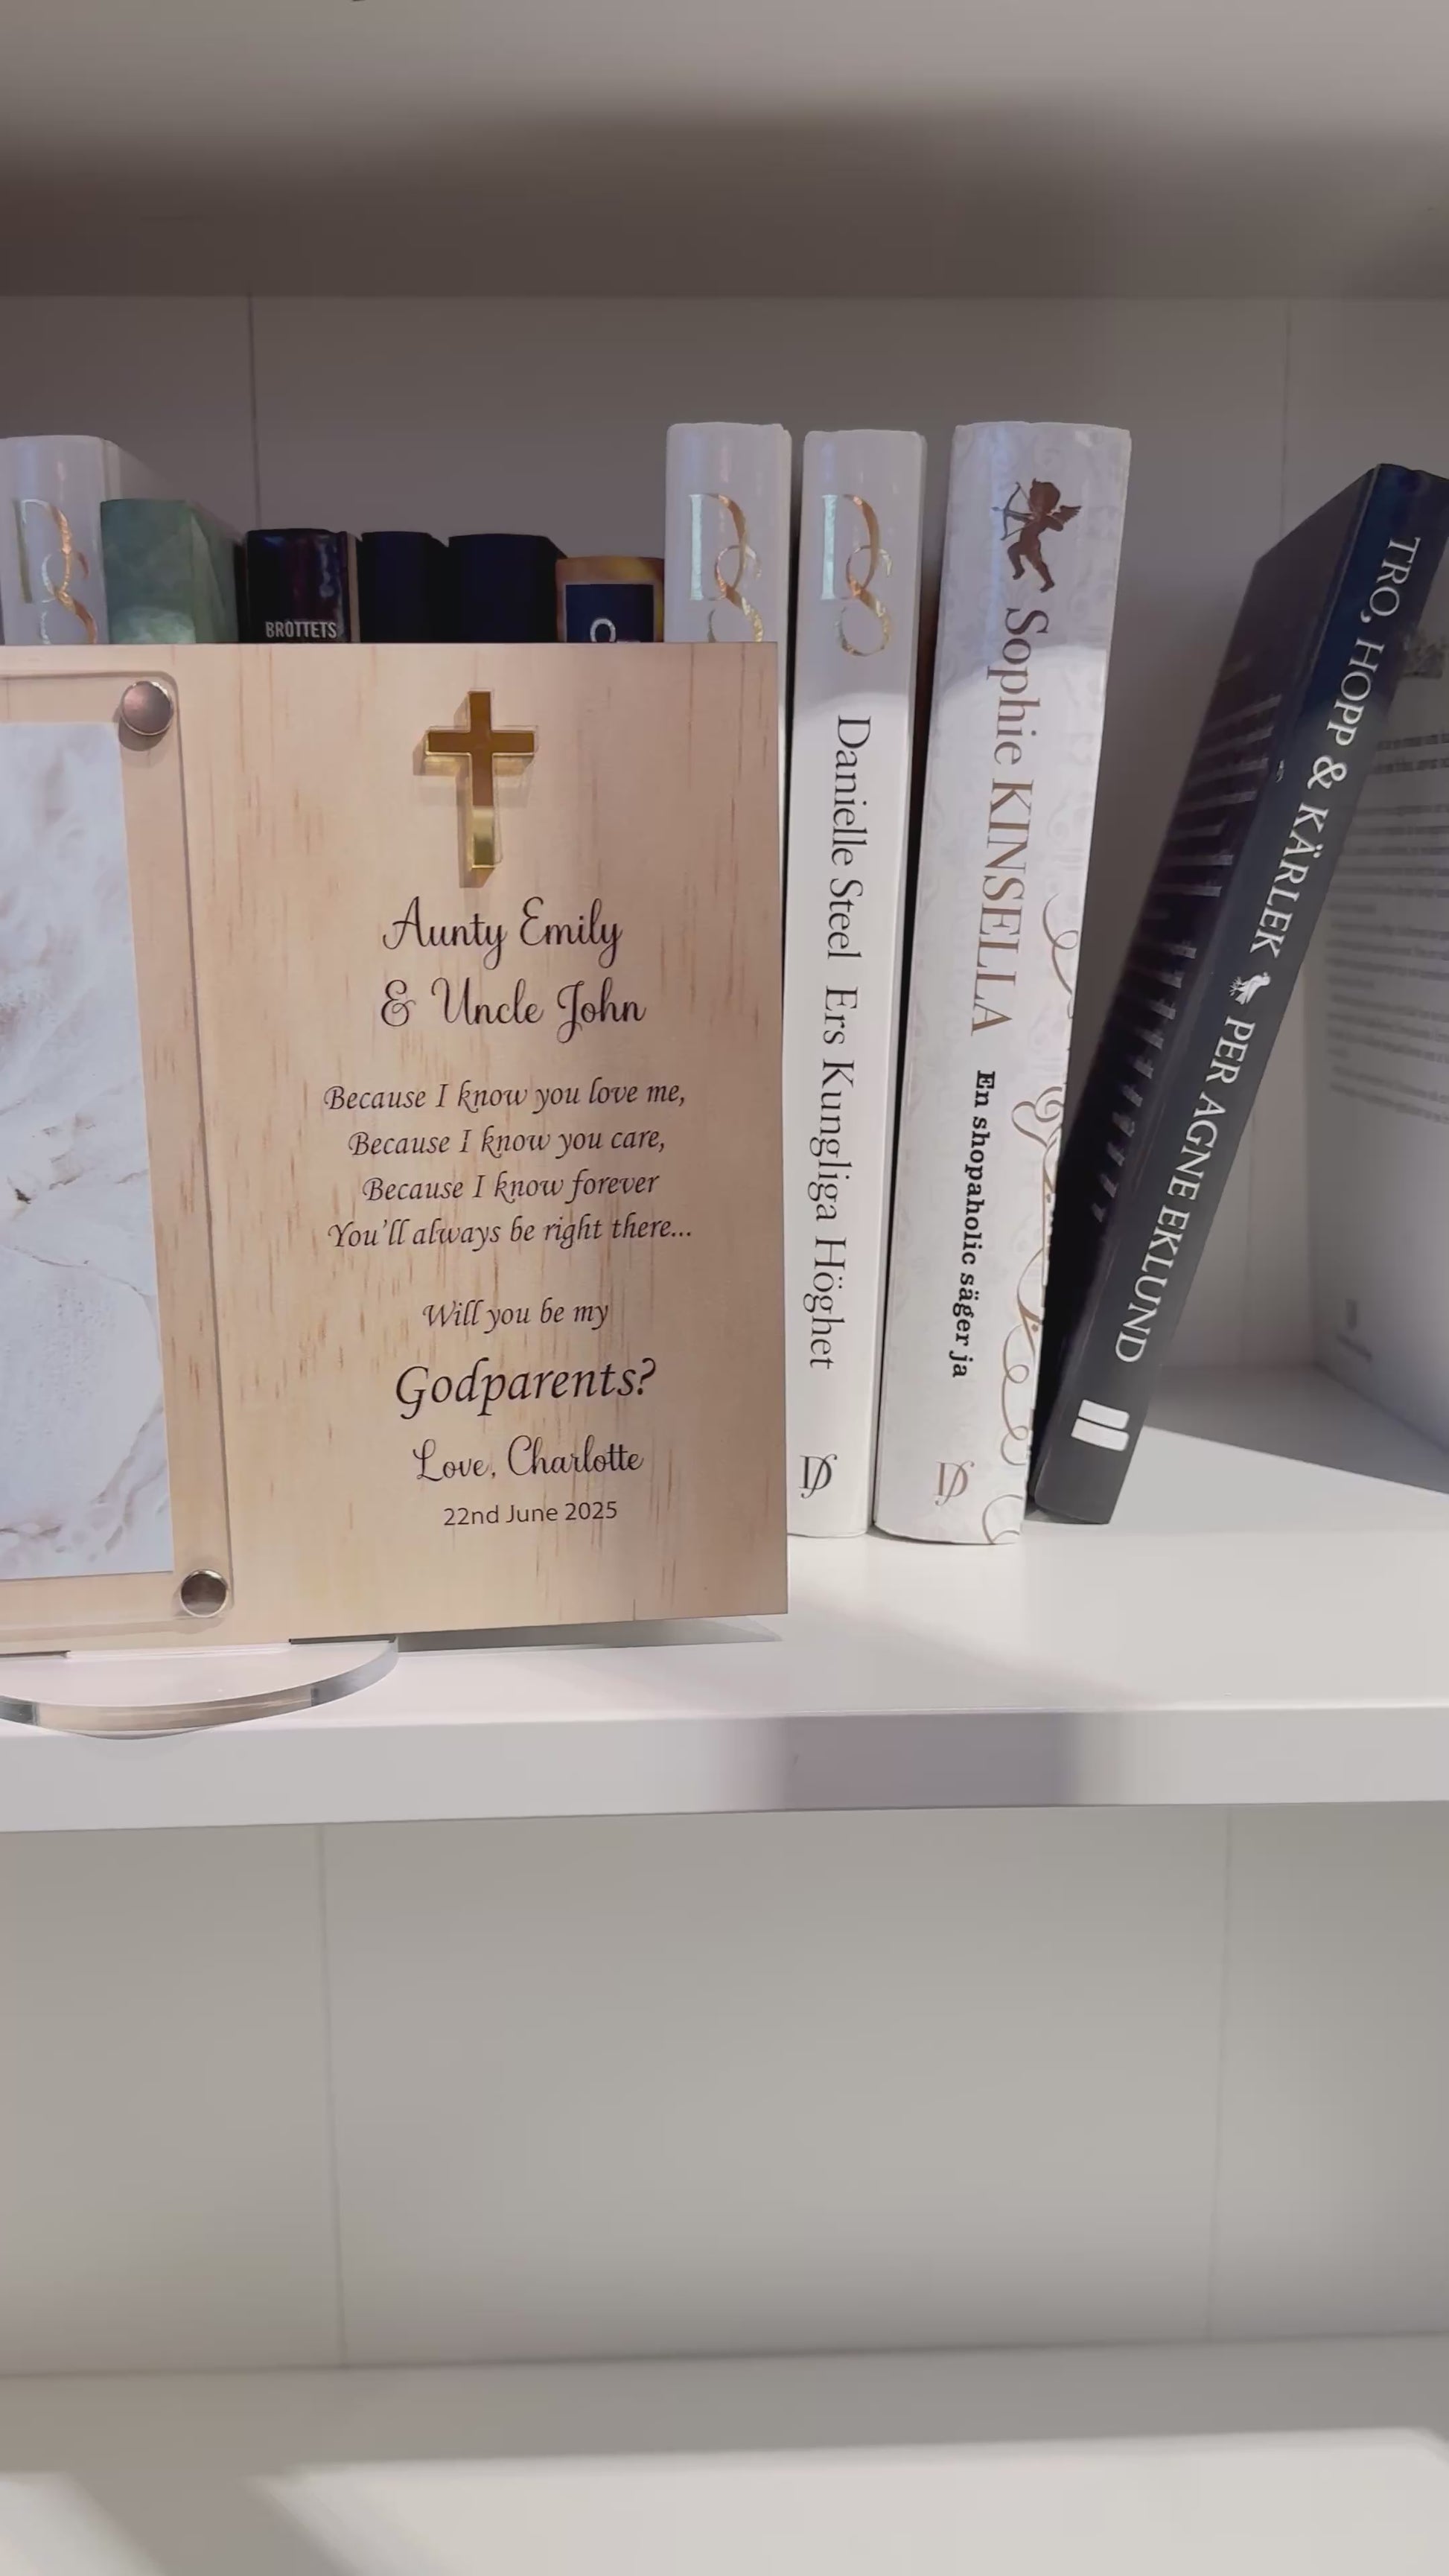 BROTTETS
Aunty Emily
& Uncle John
Because I know you love me,
Because I know you care,
Because I know forever
You'll always be right there...
Will you be my
Godparents?
Love, Charlotte
22nd June 2025
DS
DS
DS
Danielle Steel Ers Kungliga Höghet
Sophie KINSELLA En shopaholic säger ja
TRO, HOPP & KÄRLEK PER AGNE EKLUND